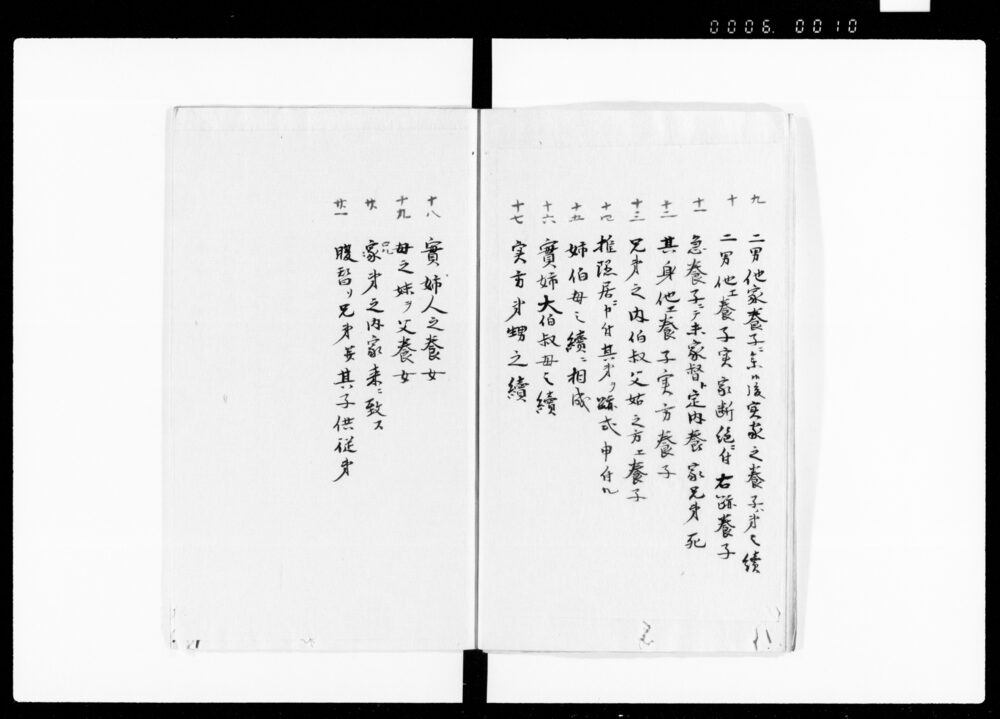 0006. 0010
九 二男他家養子ニ参候後実家之養子弟之續
十 二男他エ養子実家断絶ニ付右跡養子
十一 急養子ニテ未家督ト定内養家兄弟死
十二 其身他エ養子実方養子
十三 兄弟之内伯叔父姑之方エ養子
十四 推隠居ニ申付其弟ヲ跡式申付ル
十五 姉伯母之續ニ相成
十六 實姉大伯叔母之續
十七 実方弟甥之續
十八 實姉人之養女
十九 母之妹ヲ父養女
廿 兄家弟之内家来ニ致ス
廿一 腹替リ兄弟並其子供従弟